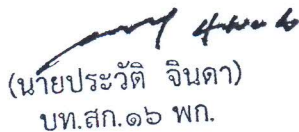 (นายประวัติ จินดา)
บท.สก.๑๖ พก.